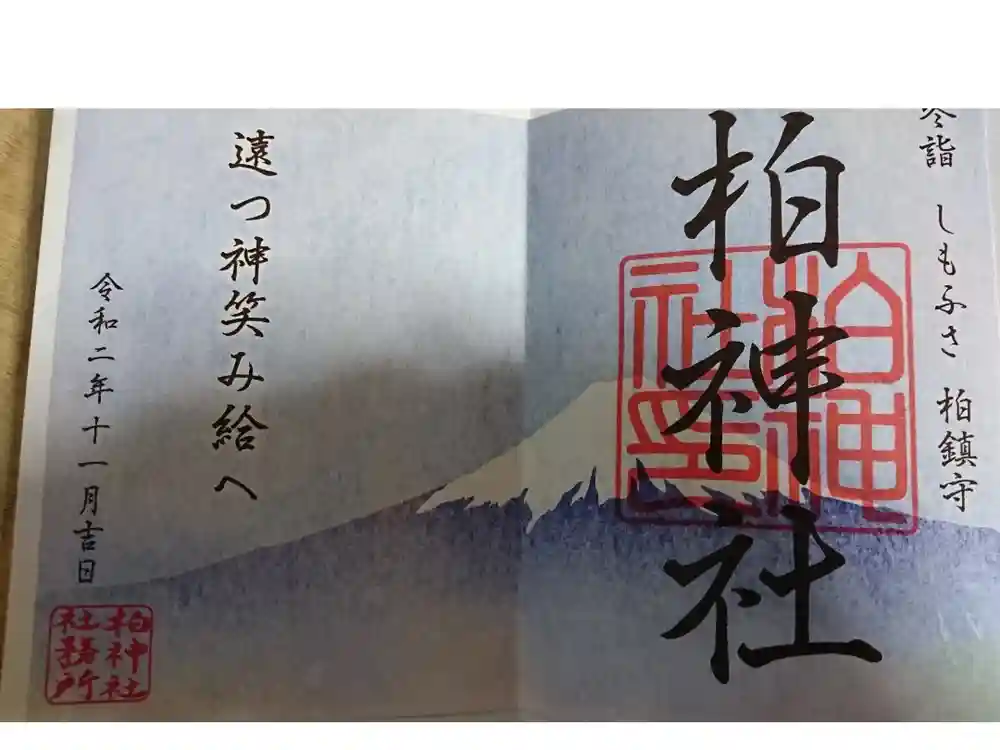 詣 しもふさ 柏鎮守
柏神社
柏神社印
遠つ神笑み給へ
令和二年十一月吉日
柏神社
社務所